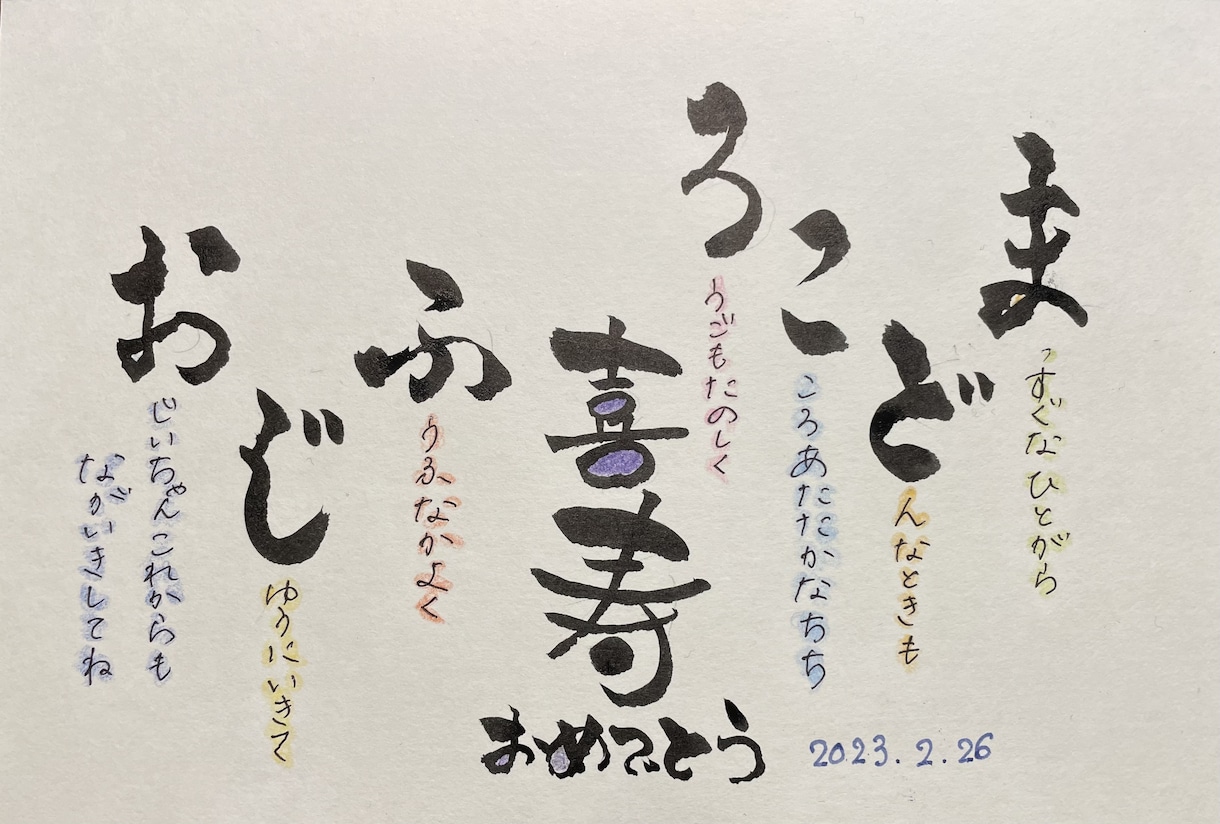 まっすぐなひとがら
どんなときも
こころあたたかなちち
ろうごもたのしく
喜寿
おめでとう
ふうふなかよく
じゆうにいきて
おじいちゃんこれからも
ながいきしてね
2023.2.26